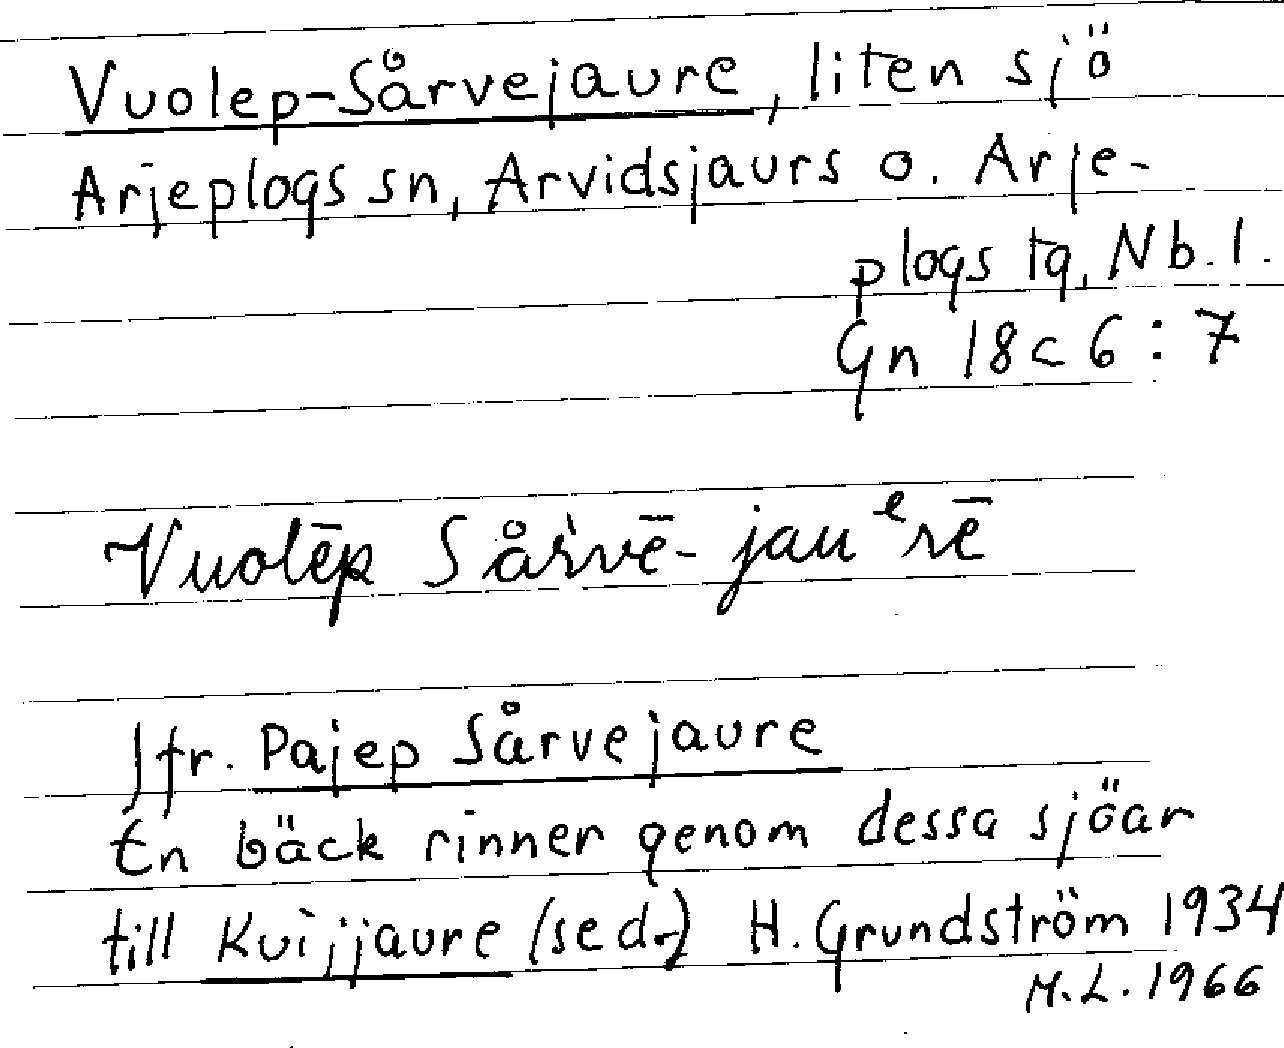 Vuolep-Sårvejaure, liten sjö
Arjeplogs sn, Arvidsjaurs o. Arje-
plogs tg, Nb. l.
Gn 18c 6:7
Vuolēp Sårvē-jauᵉrē
Jfr. Pajep Sårvejaure
En bäck rinner genom dessa sjöar
till Kuijjaure (sed.) H. Grundström 1934
M.L. 1966